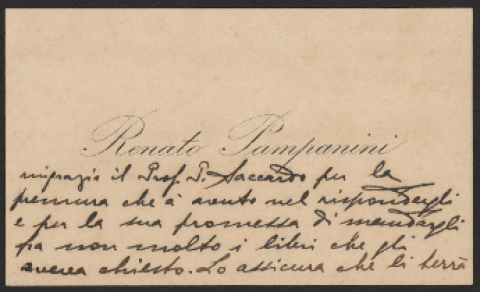 Renato Pampanini
ringrazia il Prof. P. Saccardo per la
premura che à avuto nel rispondergli
e per la sua promessa di mandargli
fra non molto i libri che gli
aveva chiesto. Lo assicura che li terrà